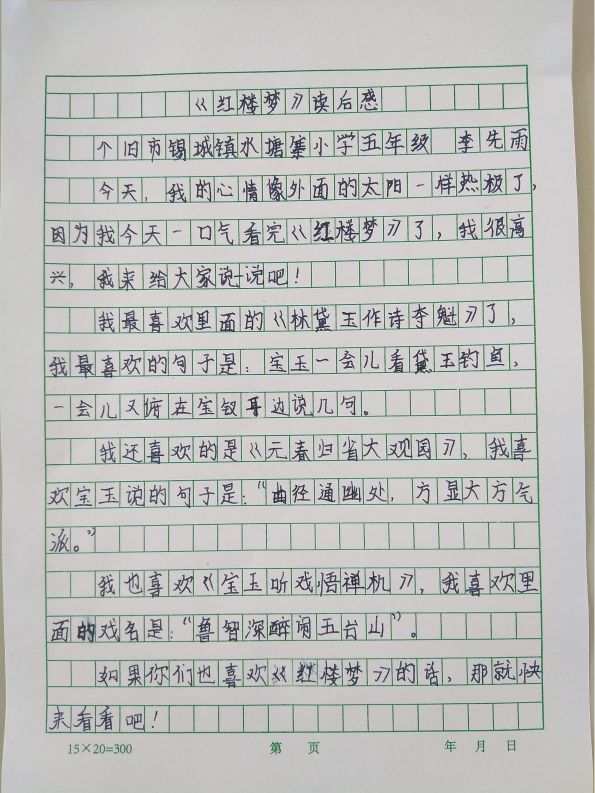 《红楼梦》读后感
个旧市锡城镇水塘寨小学五年级 李先雨
今天，我的心情像外面的太阳一样热极了，
因为我今天一口气看完《红楼梦》了，我很高
兴，我来给大家说说吧！
我最喜欢里面的《林黛玉作诗李魁》了，
我最喜欢的句子是：宝玉一会儿看黛玉钓鱼，
一会儿又俯在宝钗耳边说几句。
我还喜欢的是《元春归省大观园》，我喜
欢宝玉说的句子是：“曲径通幽处，方显大方气
派。”
我也喜欢《宝玉听戏悟禅机》，我喜欢里
面的戏名是：“鲁智深醉闹五台山”。
如果你们也喜欢《红楼梦》的话，那就快
来看看吧！
15×20=300 第 页 年 月 日